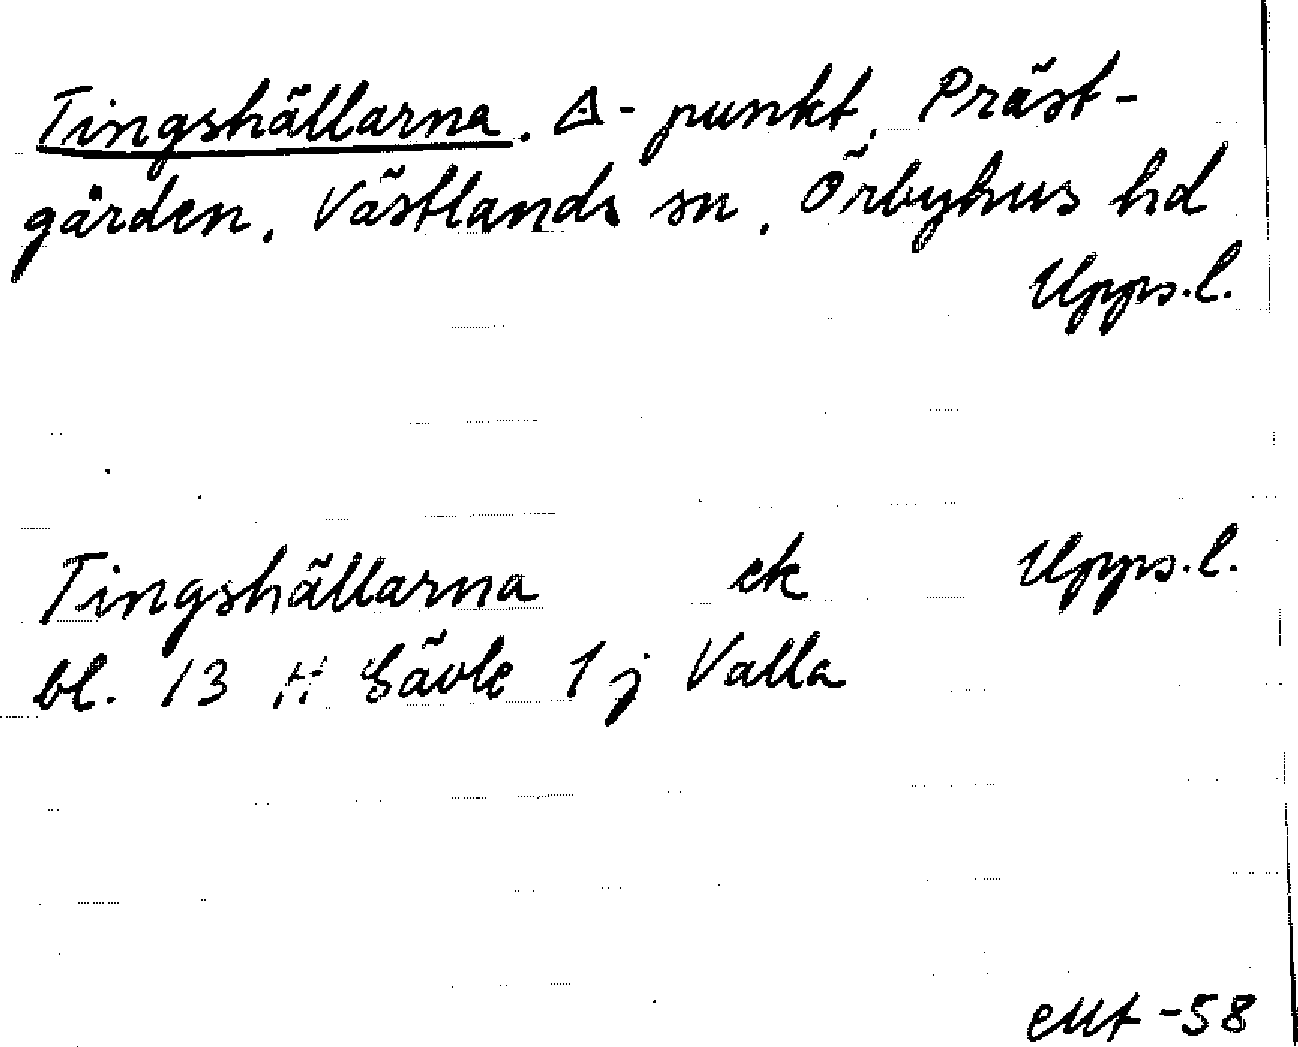 Tingshällarna. △-punkt, Präst-
gården, Västlands sn, Örbyhus hd
Upps.l.
Tingshällarna ek Upps.l.
bl. 13 H Gävle 1 j Valla
-58